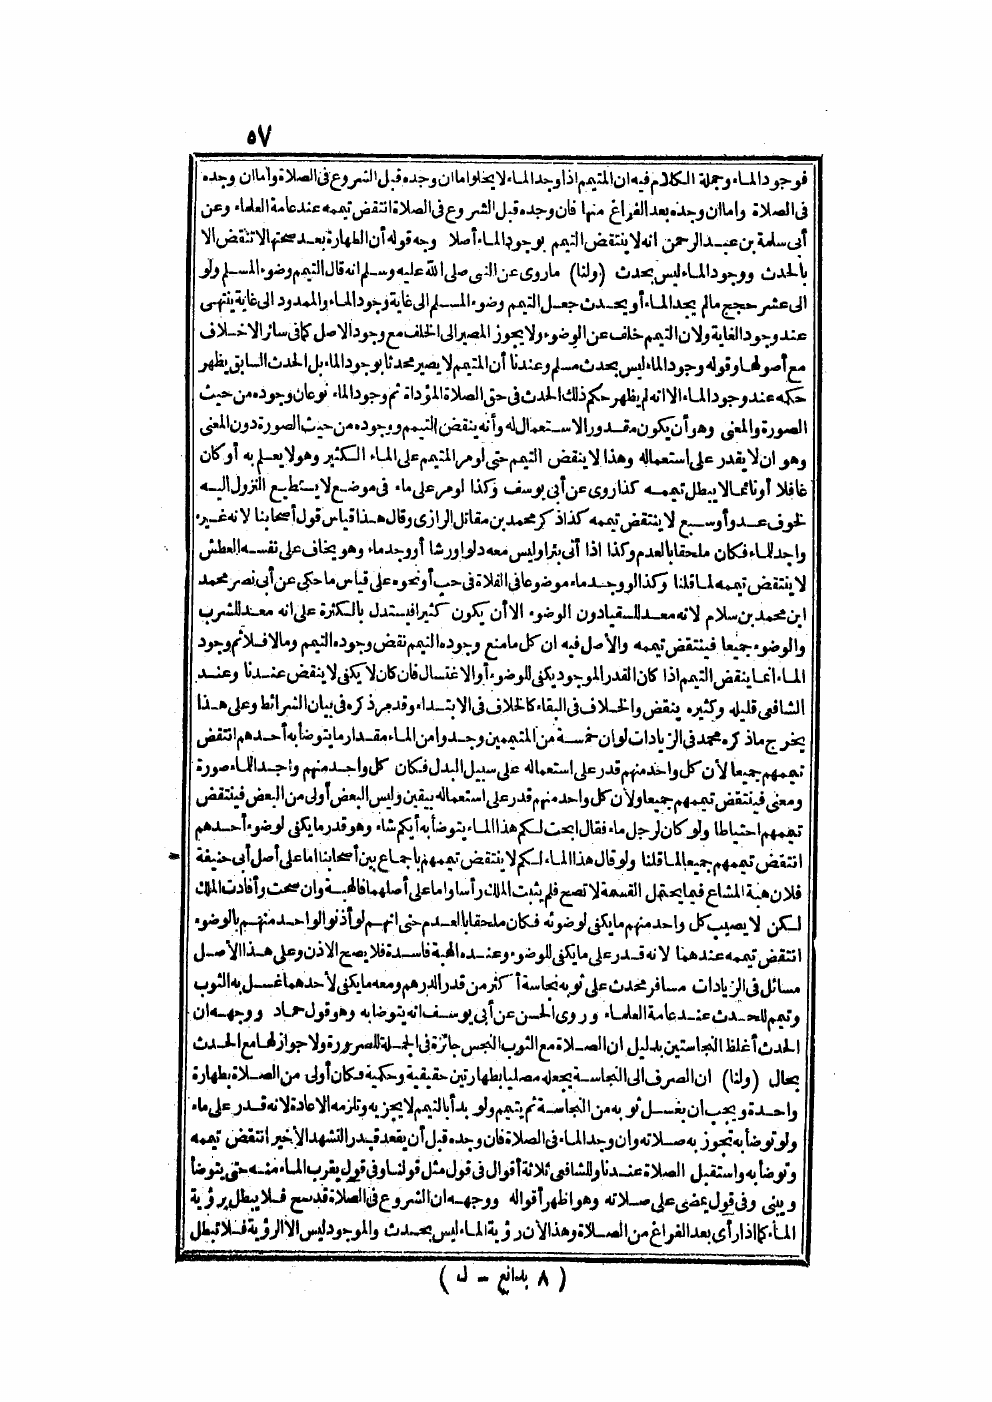 ٥٧
فوجود الماء وجملة الكلام فيه ان المتيمم اذا وجد الماء لا يخلو اما ان وجده قبل الشروع فى الصلاة واما ان وجده
فى الصلاة واما ان وجده بعد الفراغ منها فان وجده قبل الشروع فى الصلاة انتقض تيممه عند عامة العلماء وعن
أبى سلمة بن عبد الرحمن انه لا ينتقض التيمم بوجود الماء أصلا وجه قوله أن الطهارة بعد صحتها لا تنتقض الا
بالحدث ووجود الماء ليس بحدث (ولنا) ماروى عن النبى صلى الله عليه وسلم انه قال التيمم وضوء المسلم ولو
الى عشر حجج مالم يجد الماء أو يحدث جعل التيمم وضوء المسلم الى غاية وجود الماء والممدود الى غاية ينتهى
عند وجود الغاية ولان التيمم خلف عن الوضوء ولا يجوز المصير الى الخلف مع وجود الاصل كما فى سائر الاخلاف
مع أصولها وقوله وجود الماء ليس بحدث مسلم وعندنا أن المتيمم لا يصير محدثا بوجود الماء بل الحدث السابق يظهر
حكمه عند وجود الماء الا انه لم يظهر حكم ذلك الحدث فى حق الصلاة المؤداة ثم وجود الماء نوعان وجوده من حيث
الصورة والمعنى وهو أن يكون مقدور الاستعمال له وأنه ينقض التيمم ووجوده من حيث الصورة دون المعنى
وهو ان لا يقدر على استعماله وهذا لا ينقض التيمم حتى لو مر المتيمم على الماء الكثير وهو لا يعلم به أو كان
غافلا أو نائما لا يبطل تيممه كذا روى عن أبى يوسف وكذا لو مر على ماء فى موضع لا يستطيع النزول اليه
لخوف عدو أو سبع لا ينتقض تيممه كذا ذكر محمد بن مقاتل الرازى وقال هذا قياس قول أصحابنا لانه غير
واجد للماء فكان ملحقا بالعدم وكذا اذا أتى بئرا وليس معه دلو أو رشا أو وجد ماء وهو يخاف على نفسه العطش
لا ينتقض تيممه لما قلنا وكذا لو وجد ماء موضوعا فى الفلاة فى حب أو نحوه على قياس ما حكى عن أبى نصر محمد
ابن محمد بن سلام لانه معد للسقيا دون الوضوء الا أن يكون كثيرا فيستدل بالكثرة على انه معد للشرب
والوضوء جميعا فينتقض تيممه والاصل فيه ان كل ما منع وجوده التيمم نقض وجوده التيمم ومالا فلا ثم وجود
الماء انما ينقض التيمم اذا كان القدر الموجود يكفى للوضوء أو الاغتسال فان كان لا يكفى لا ينقض عندنا وعند
الشافعى قليله وكثيره ينقض والخلاف فى البقاء كالخلاف فى الابتداء وقد مر ذكره فى بيان الشرائط وعلى هذا
يخرج ماذكره محمد فى الزيادات لو ان خمسة من المتيممين وجدوا من الماء مقدار ما يتوضأ به أحدهم انتقض
تيممهم جميعا لأن كل واحد منهم قدر على استعماله على سبيل البدل فكان كل واحد منهم واجد الماء صورة
ومعنى فينتقض تيممهم جميعا ولان كل واحد منهم قدر على استعماله بيقين وليس البعض أولى من البعض فينتقض
تيممهم احتياطا ولو كان لرجل ماء فقال ابحت لكم هذا الماء يتوضأ به أيكم شاء وهو قدر ما يكفى لوضوء أحدهم
انتقض تيممهم جميعا لما قلنا ولو قال هذا الماء لكم لا ينتقض تيممهم باجماع بين أصحابنا اما على أصل أبى حنيفة
فلان هبة المشاع فيما يحتمل القسمة لا تصح فلم يثبت الملك رأسا واما على أصلهما فالهبة وان صحت وأفادت الملك
لكن لا يصيب كل واحد منهم ما يكفى لوضوئه فكان ملحقا بالعدم حتى انهم لو أذنوا لواحد منهم بالوضوء
انتقض تيممه عندهما لانه قدر على ما يكفى للوضوء وعنده الهبة فاسدة فلا يصح الاذن وعلى هذا الاصل
مسائل فى الزيادات مسافر محدث على ثوبه نجاسة أكثر من قدر الدرهم ومعه ما يكفى لأحدهما غسل به الثوب
وتيمم للحدث عند عامة العلماء وروى الحسن عن أبى يوسف انه يتوضأ به وهو قول حماد ووجهه ان
الحدث أغلظ النجاستين بدليل ان الصلاة مع الثوب النجس جائزة فى الجملة للضرورة ولا جواز لها مع الحدث
بحال (ولنا) ان الصرف الى النجاسة يجعله مصليا بطهارتين حقيقية وحكمية فكان أولى من الصلاة بطهارة
واحدة ويجب ان يغسل ثوبه من النجاسة ثم يتيمم ولو بدأ بالتيمم لا يجزيه وتلزمه الاعادة لانه قدر على ماء
ولو توضأ به تجوز به صلاته وان وجد الماء فى الصلاة فان وجده قبل أن يقعد قدر التشهد الأخير انتقض تيممه
وتوضأ به واستقبل الصلاة عندنا وللشافعى ثلاثة أقوال فى قول مثل قولنا وفى قول يقرب الماء منه حتى يتوضأ
ويبنى وفى قول يمضى على صلاته وهو اظهر أقواله ووجهه ان الشروع فى الصلاة قد صح فلا يبطل برؤية
الماء كما اذا رأى بعد الفراغ من الصلاة وهذا لأن رؤية الماء ليس بحدث والموجود ليس الا الرؤية فلا تبطل
( ٨ بدائع - ل )